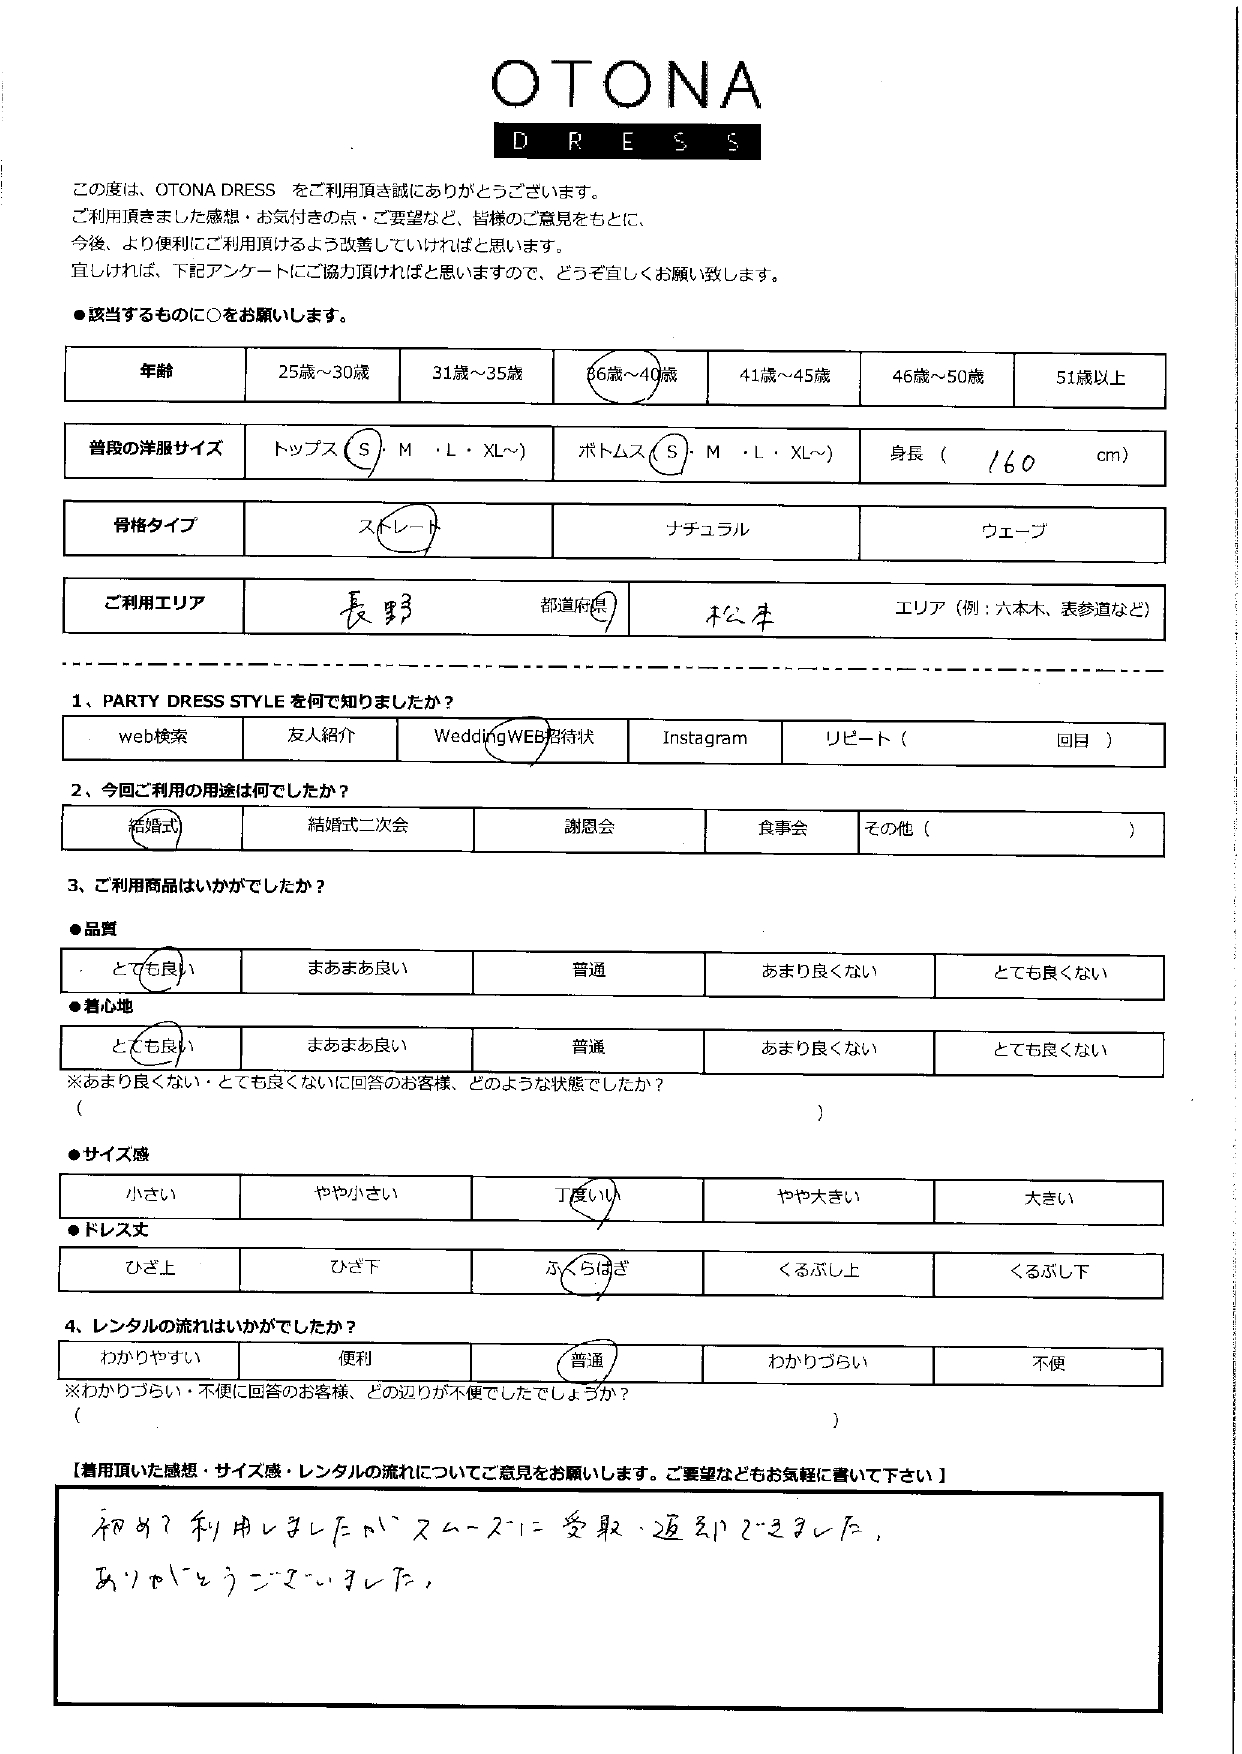 OTONA
DRESS
この度は、OTONA DRESS をご利用頂き誠にありがとうございます。
ご利用頂きました感想・お気付きの点・ご要望など、皆様のご意見をもとに、
今後、より便利にご利用頂けるよう改善していければと思います。
宜しければ、下記アンケートにご協力頂ければと思いますので、どうぞ宜しくお願い致します。
●該当するものに○をお願いします。
年齢 25歳～30歳 31歳～35歳 36歳～40歳 41歳～45歳 46歳～50歳 51歳以上
普段の洋服サイズ トップス(S・M ・L・XL～) ボトムス(S・M ・L・XL～) 身長( 160 cm)
骨格タイプ ストレート ナチュラル ウェーブ
ご利用エリア 長野 都道府県 松本 エリア(例:六本木、表参道など)
1、PARTY DRESS STYLE を何で知りましたか?
web検索 友人紹介 WeddingWEB招待状 Instagram リピート( 回目 )
2、今回ご利用の用途は何でしたか?
結婚式 結婚式二次会 謝恩会 食事会 その他( )
3、ご利用商品はいかがでしたか?
●品質
とても良い まあまあ良い 普通 あまり良くない とても良くない
●着心地
とても良い まあまあ良い 普通 あまり良くない とても良くない
※あまり良くない・とても良くないに回答のお客様、どのような状態でしたか?
( )
●サイズ感
小さい やや小さい 丁度いい やや大きい 大きい
●ドレス丈
ひざ上 ひざ下 ふくらはぎ くるぶし上 くるぶし下
4、レンタルの流れはいかがでしたか?
わかりやすい 便利 普通 わかりづらい 不便
※わかりづらい・不便に回答のお客様、どの辺りが不便でしたでしょうか?
( )
【着用頂いた感想・サイズ感・レンタルの流れについてご意見をお願いします。ご要望などもお気軽に書いて下さい】
初めて利用しましたがスムーズに受取・返却できました。
ありがとうございました。